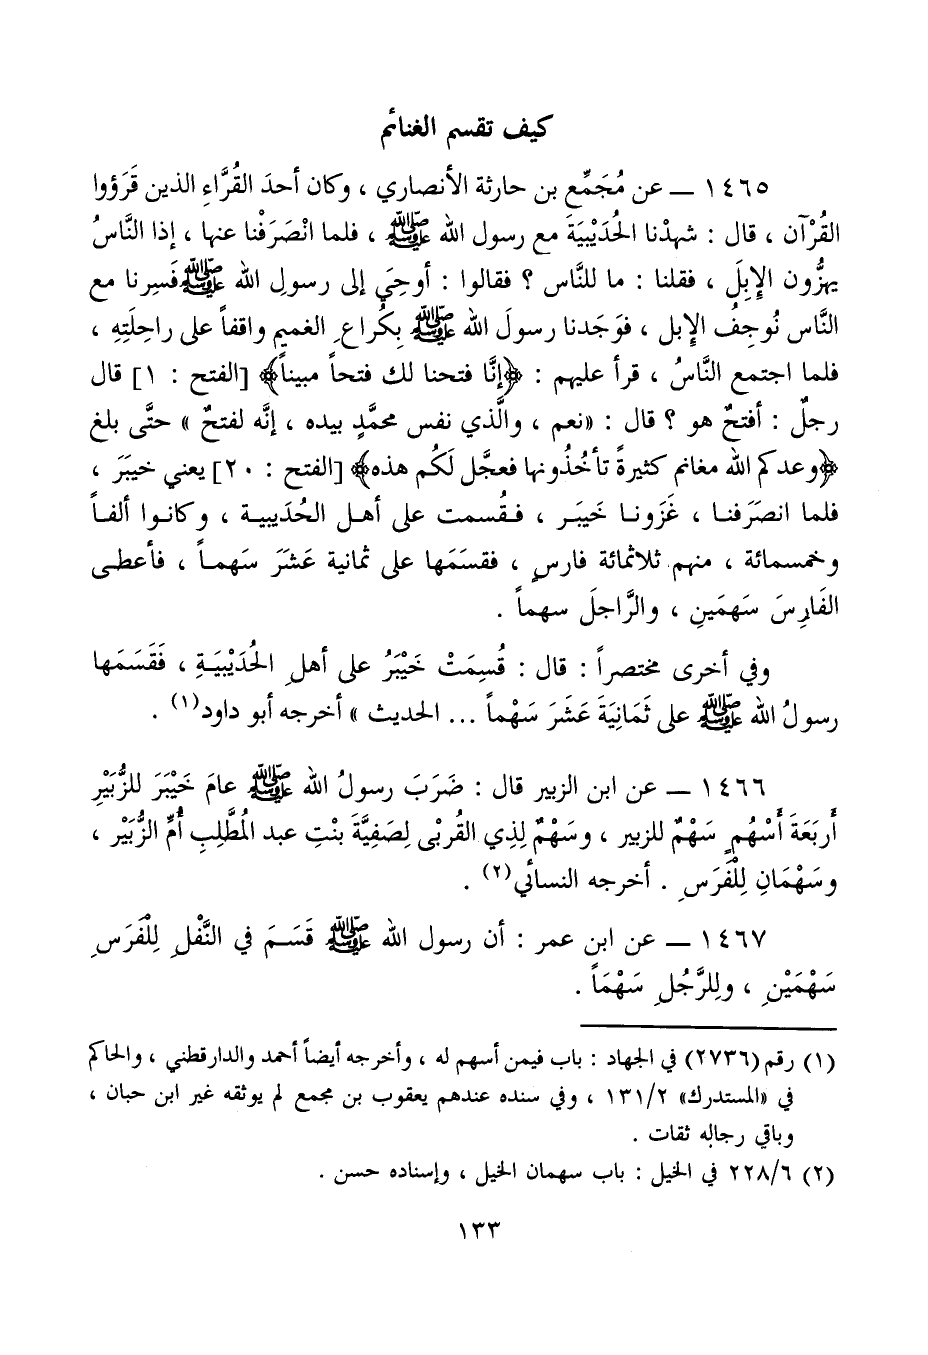 كيف تقسم الغنائم
١٤٦٥ — عن مُجَمِّع بن حارثة الأنصاري ، وكان أحدَ القُرَّاءِ الذين قَرَؤوا
القُرْآن ، قال : شهدْنا الحُدَيْبِيَةَ مع رسول الله ﷺ ، فلما انْصَرَفْنا عنها ، إذا النَّاسُ
يهزُّون الإِبِلَ ، فقلنا : ما للنَّاس ؟ فقالوا : أوحِيَ إلى رسولِ الله ﷺ فَسِرنا مع
النَّاس نُوجِفُ الإبل ، فوَجَدنا رسولَ الله ﷺ بِكُراعِ الغميمِ واقفاً على راحِلَتِهِ ،
فلما اجتمع النَّاسُ ، قرأ عليهم : ﴿إنَّا فتحنا لك فتحاً مبيناً﴾ [الفتح : ١] قال
رجلٌ : أفتحٌ هو ؟ قال : «نعم ، والَّذي نفس محمَّدٍ بيده ، إنَّه لفتحٌ » حتَّى بلغ
﴿وعدكم الله مغانم كثيرةً تأخُذُونها فعجَّل لَكُم هذه﴾ [الفتح : ٢٠] يعني خيبَرَ ،
فلما انصَرَفنا ، غَزَونا خَيبَر ، فقُسمت على أهل الحُدَيبية ، وكانوا ألفاً
وخمسمائة ، منهم ثلاثمائة فارسٍ ، فقسَمَها على ثمانية عَشَرَ سَهماً ، فأعطى
الفَارِسَ سَهمَينِ ، والرَّاجلَ سهماً .
وفي أخرى مختصراً : قال : قُسِمَتْ خَيْبَرُ على أهلِ الحُدَيْبَيَةِ ، فَقَسَمَها
رسولُ الله ﷺ على ثَمَانِيَةَ عَشَرَ سَهْماً ... الحديث » أخرجه أبو داود(١) .
١٤٦٦ — عن ابن الزبير قال : ضَرَبَ رسولُ الله ﷺ عامَ خَيْبَرَ للزُّبَيْرِ
أَربَعَةَ أَسْهُمٍ سَهْمٌ للزبير ، وسَهْمٌ لِذِي القُربْى لِصَفِيَّةَ بنْتِ عبد المُطَّلِبِ أُمِّ الزُّبَيْر ،
وسَهْمَانِ لِلْفَرَسِ . أخرجه النسائي(٢) .
١٤٦٧ — عن ابن عمر : أن رسول الله ﷺ قَسَمَ في النَّفْلِ لِلْفَرَسِ
سَهْمَيْنِ ، ولِلرَّجُلِ سَهْمَاً .
(١) رقم (٢٧٣٦) في الجهاد : باب فيمن أسهم له ، وأخرجه أيضاً أحمد والدارقطني ، والحاكم
في «المستدرك» ١٣١/٢ ، وفي سنده عندهم يعقوب بن مجمع لم يوثقه غير ابن حبان ،
وباقي رجاله ثقات .
(٢) ٢٢٨/٦ في الخيل : باب سهمان الخيل ، وإسناده حسن .
١٣٣